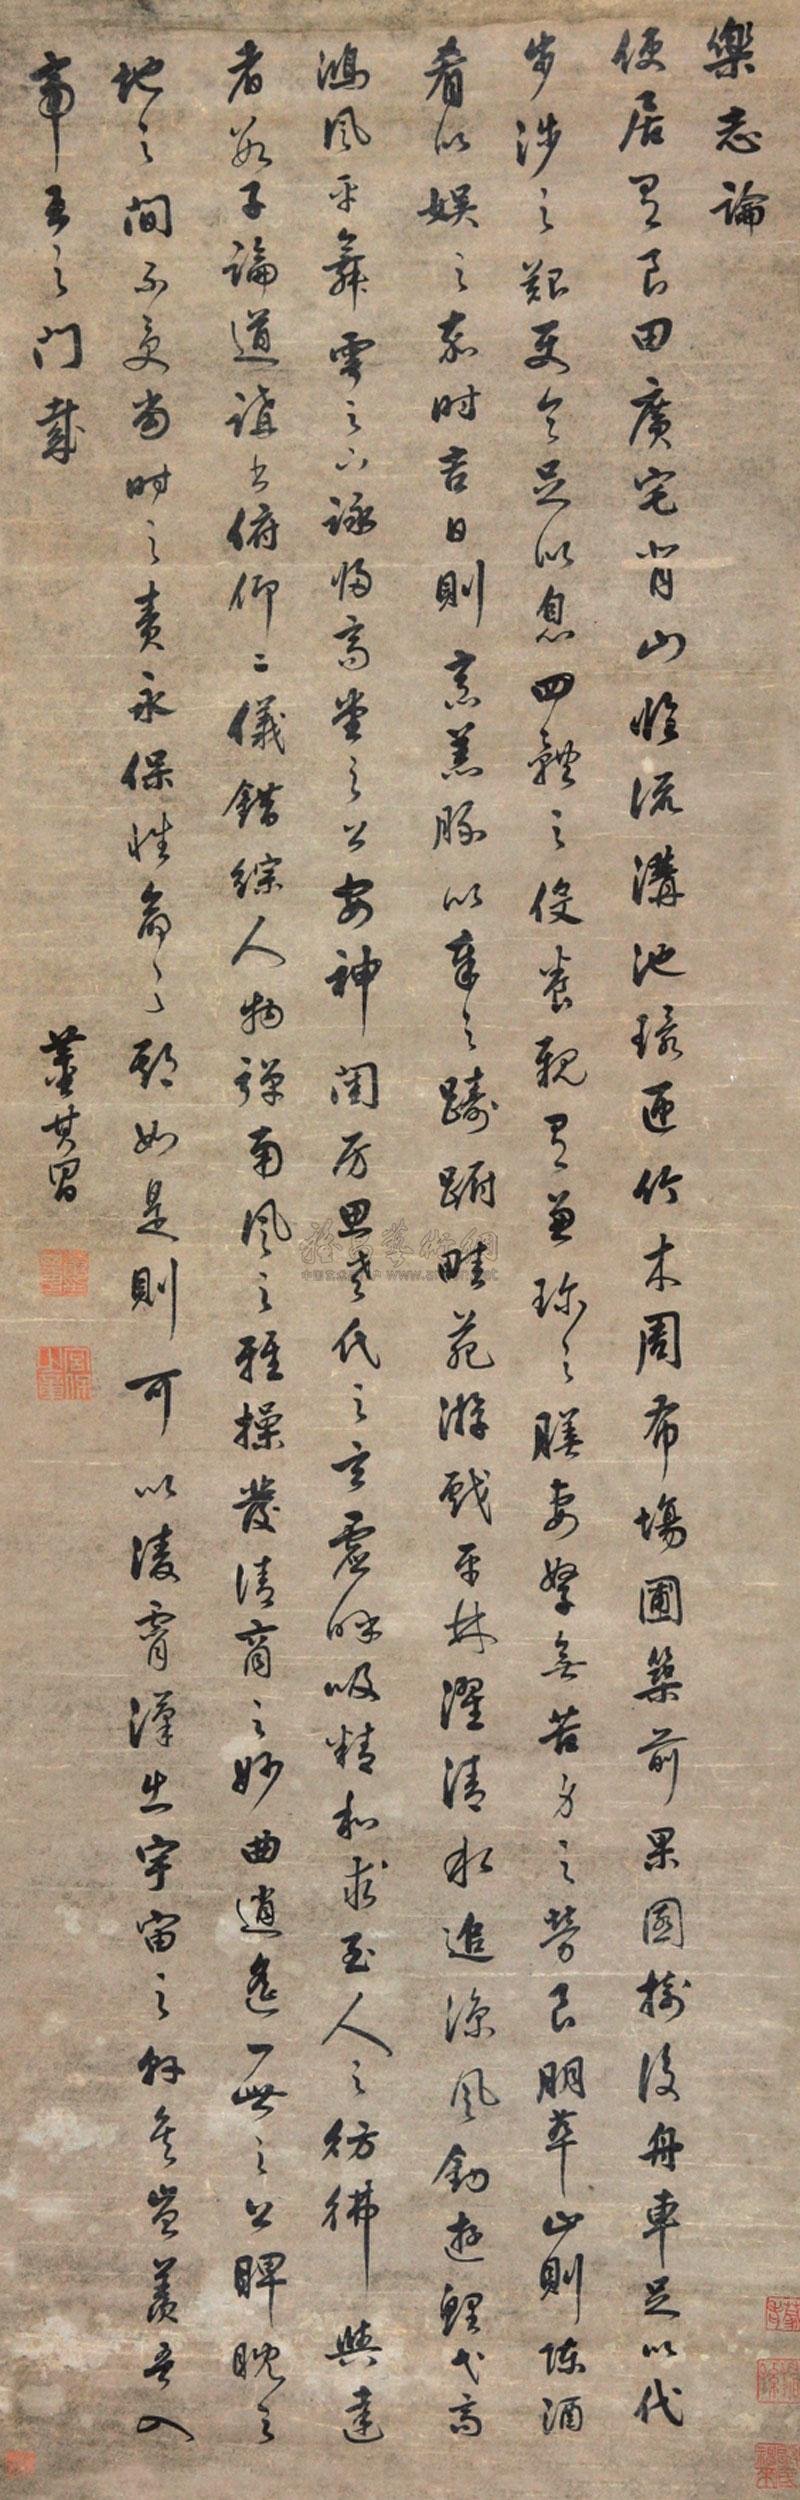 樂志論
使居有良田廣宅背山臨流溝池環匝竹木周布塲圃築前果園樹後舟車足以代
步涉之艱使令足以息四體之役養親有兼珍之膳妻孥無苦身之勞良朋萃止則陳酒
肴以娛之嘉時吉日則烹羔豚以奉之躊躇畦苑游戲平林濯清水追涼風釣遊鯉弋高
鴻風乎舞雩之下詠歸高堂之上安神閨房思老氏之玄虛呼吸精和求至人之彷彿與達
者數子論道講書俯仰二儀錯綜人物彈南風之雅操發清商之妙曲逍遙一世之上睥睨天
地之間不受當時之責永保性命之期如是則可以凌霄漢出宇宙之外矣豈羨夫入
帝王之門哉
董其昌